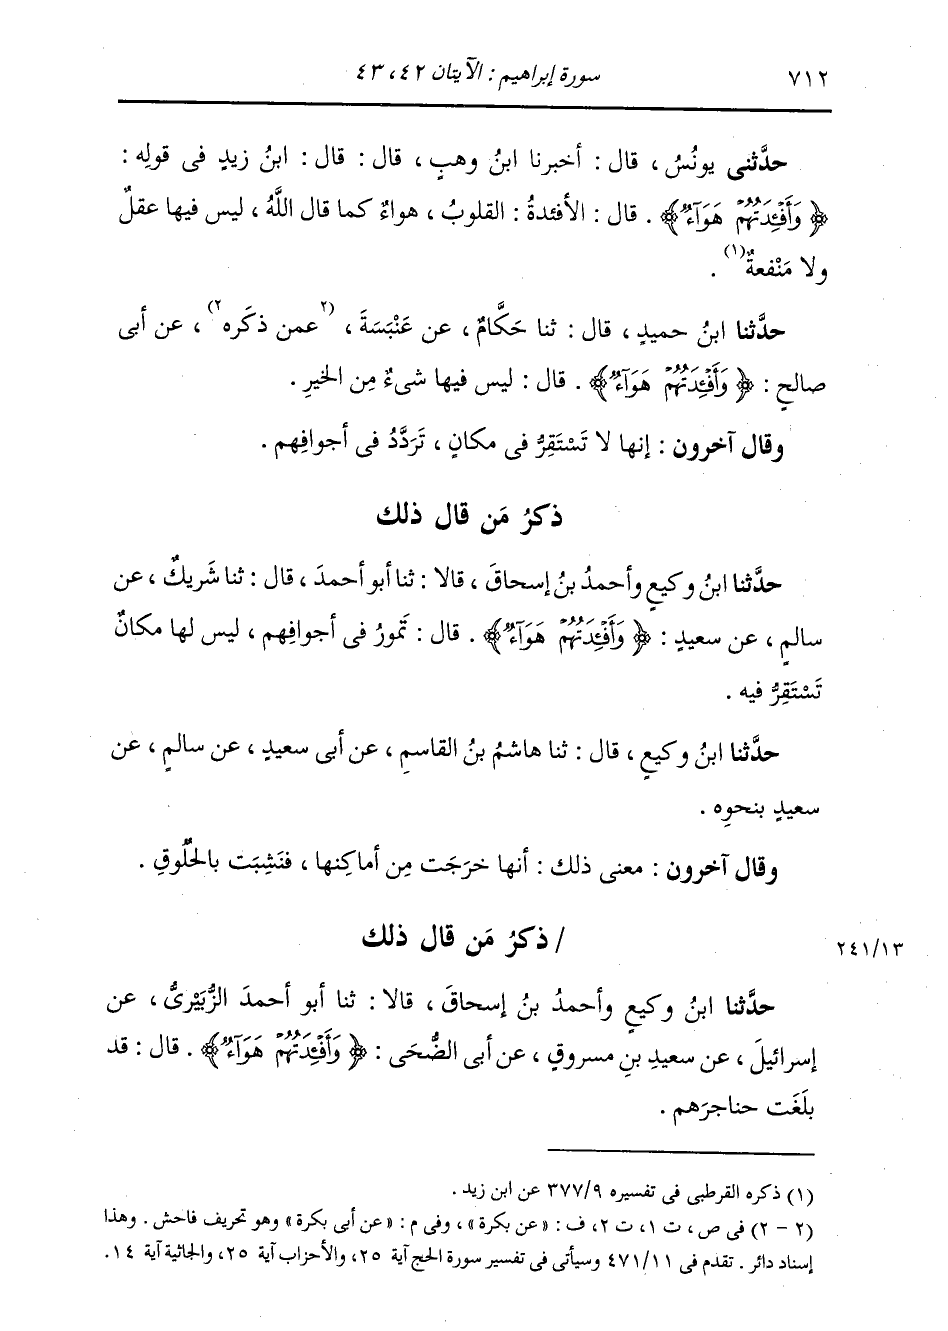 ٧١٢ سورة إبراهيم : الآيتان ٤٢ ، ٤٣
حدَّثنى يونُسُ ، قال : أخبرنا ابنُ وهبٍ ، قال : قال : ابنُ زيدٍ فى قولِه :
﴿ وَأَفْئِدَتُهُمْ هَوَآءٌ ﴾ . قال : الأفئدةُ : القلوبُ ، هواءٌ كما قال اللَّهُ ، ليس فيها عقلٌ
ولا مَنْفعةٌ(١) .
حدَّثنا ابنُ حميدٍ ، قال : ثنا حَكَّامٌ ، عن عَنْبَسَةَ ، (٢عمن ذكَره٢) ، عن أبى
صالحٍ : ﴿ وَأَفْئِدَتُهُمْ هَوَآءٌ ﴾ . قال : ليس فيها شىءٌ مِن الخيرِ .
وقال آخرون : إنها لا تَسْتَقِرُّ فى مكانٍ ، تَرَدَّدُ فى أجوافِهم .
ذكرُ مَن قال ذلك
حدَّثنا ابنُ وكيعٍ وأحمدُ بنُ إسحاقَ ، قالا : ثنا أبو أحمدَ ، قال : ثنا شَريكٌ ، عن
سالمٍ ، عن سعيدٍ : ﴿ وَأَفْئِدَتُهُمْ هَوَآءٌ ﴾ . قال : تَمورُ فى أجوافِهم ، ليس لها مكانٌ
تَسْتَقِرُّ فيه .
حدَّثنا ابنُ وكيعٍ ، قال : ثنا هاشمُ بنُ القاسمِ ، عن أبى سعيدٍ ، عن سالمٍ ، عن
سعيدٍ بنحوِه .
وقال آخرون : معنى ذلك : أنها خرَجَت مِن أماكِنها ، فنَشِبَت بالحُلُوقِ .
/ ذكرُ مَن قال ذلك
٢٤١/١٣
حدَّثنا ابنُ وكيعٍ وأحمدُ بنُ إسحاقَ ، قالا : ثنا أبو أحمدَ الزُّبَيْرىُّ ، عن
إسرائيلَ ، عن سعيدِ بنِ مسروقٍ ، عن أبى الضُّحَى : ﴿ وَأَفْئِدَتُهُمْ هَوَآءٌ ﴾ . قال : قد
بلَغَت حناجرَهم .
(١) ذكره القرطبى فى تفسيره ٣٧٧/٩ عن ابن زيد .
(٢ - ٢) فى ص ، ت ١، ت ٢، ف : « عن بكرة » ، وفى م : « عن أبى بكرة » وهو تحريف فاحش . وهذا
إسناد دائر . تقدم فى ٤٧١/١١ وسيأتى فى تفسير سورة الحج آية ٢٥، والأحزاب آية ٢٥، والجاثية آية ١٤ .